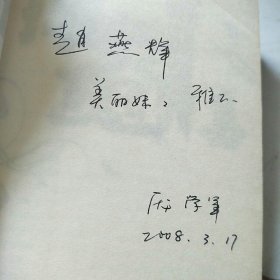 赵燕
美丽妹: 雅正
学军
2008.3.17